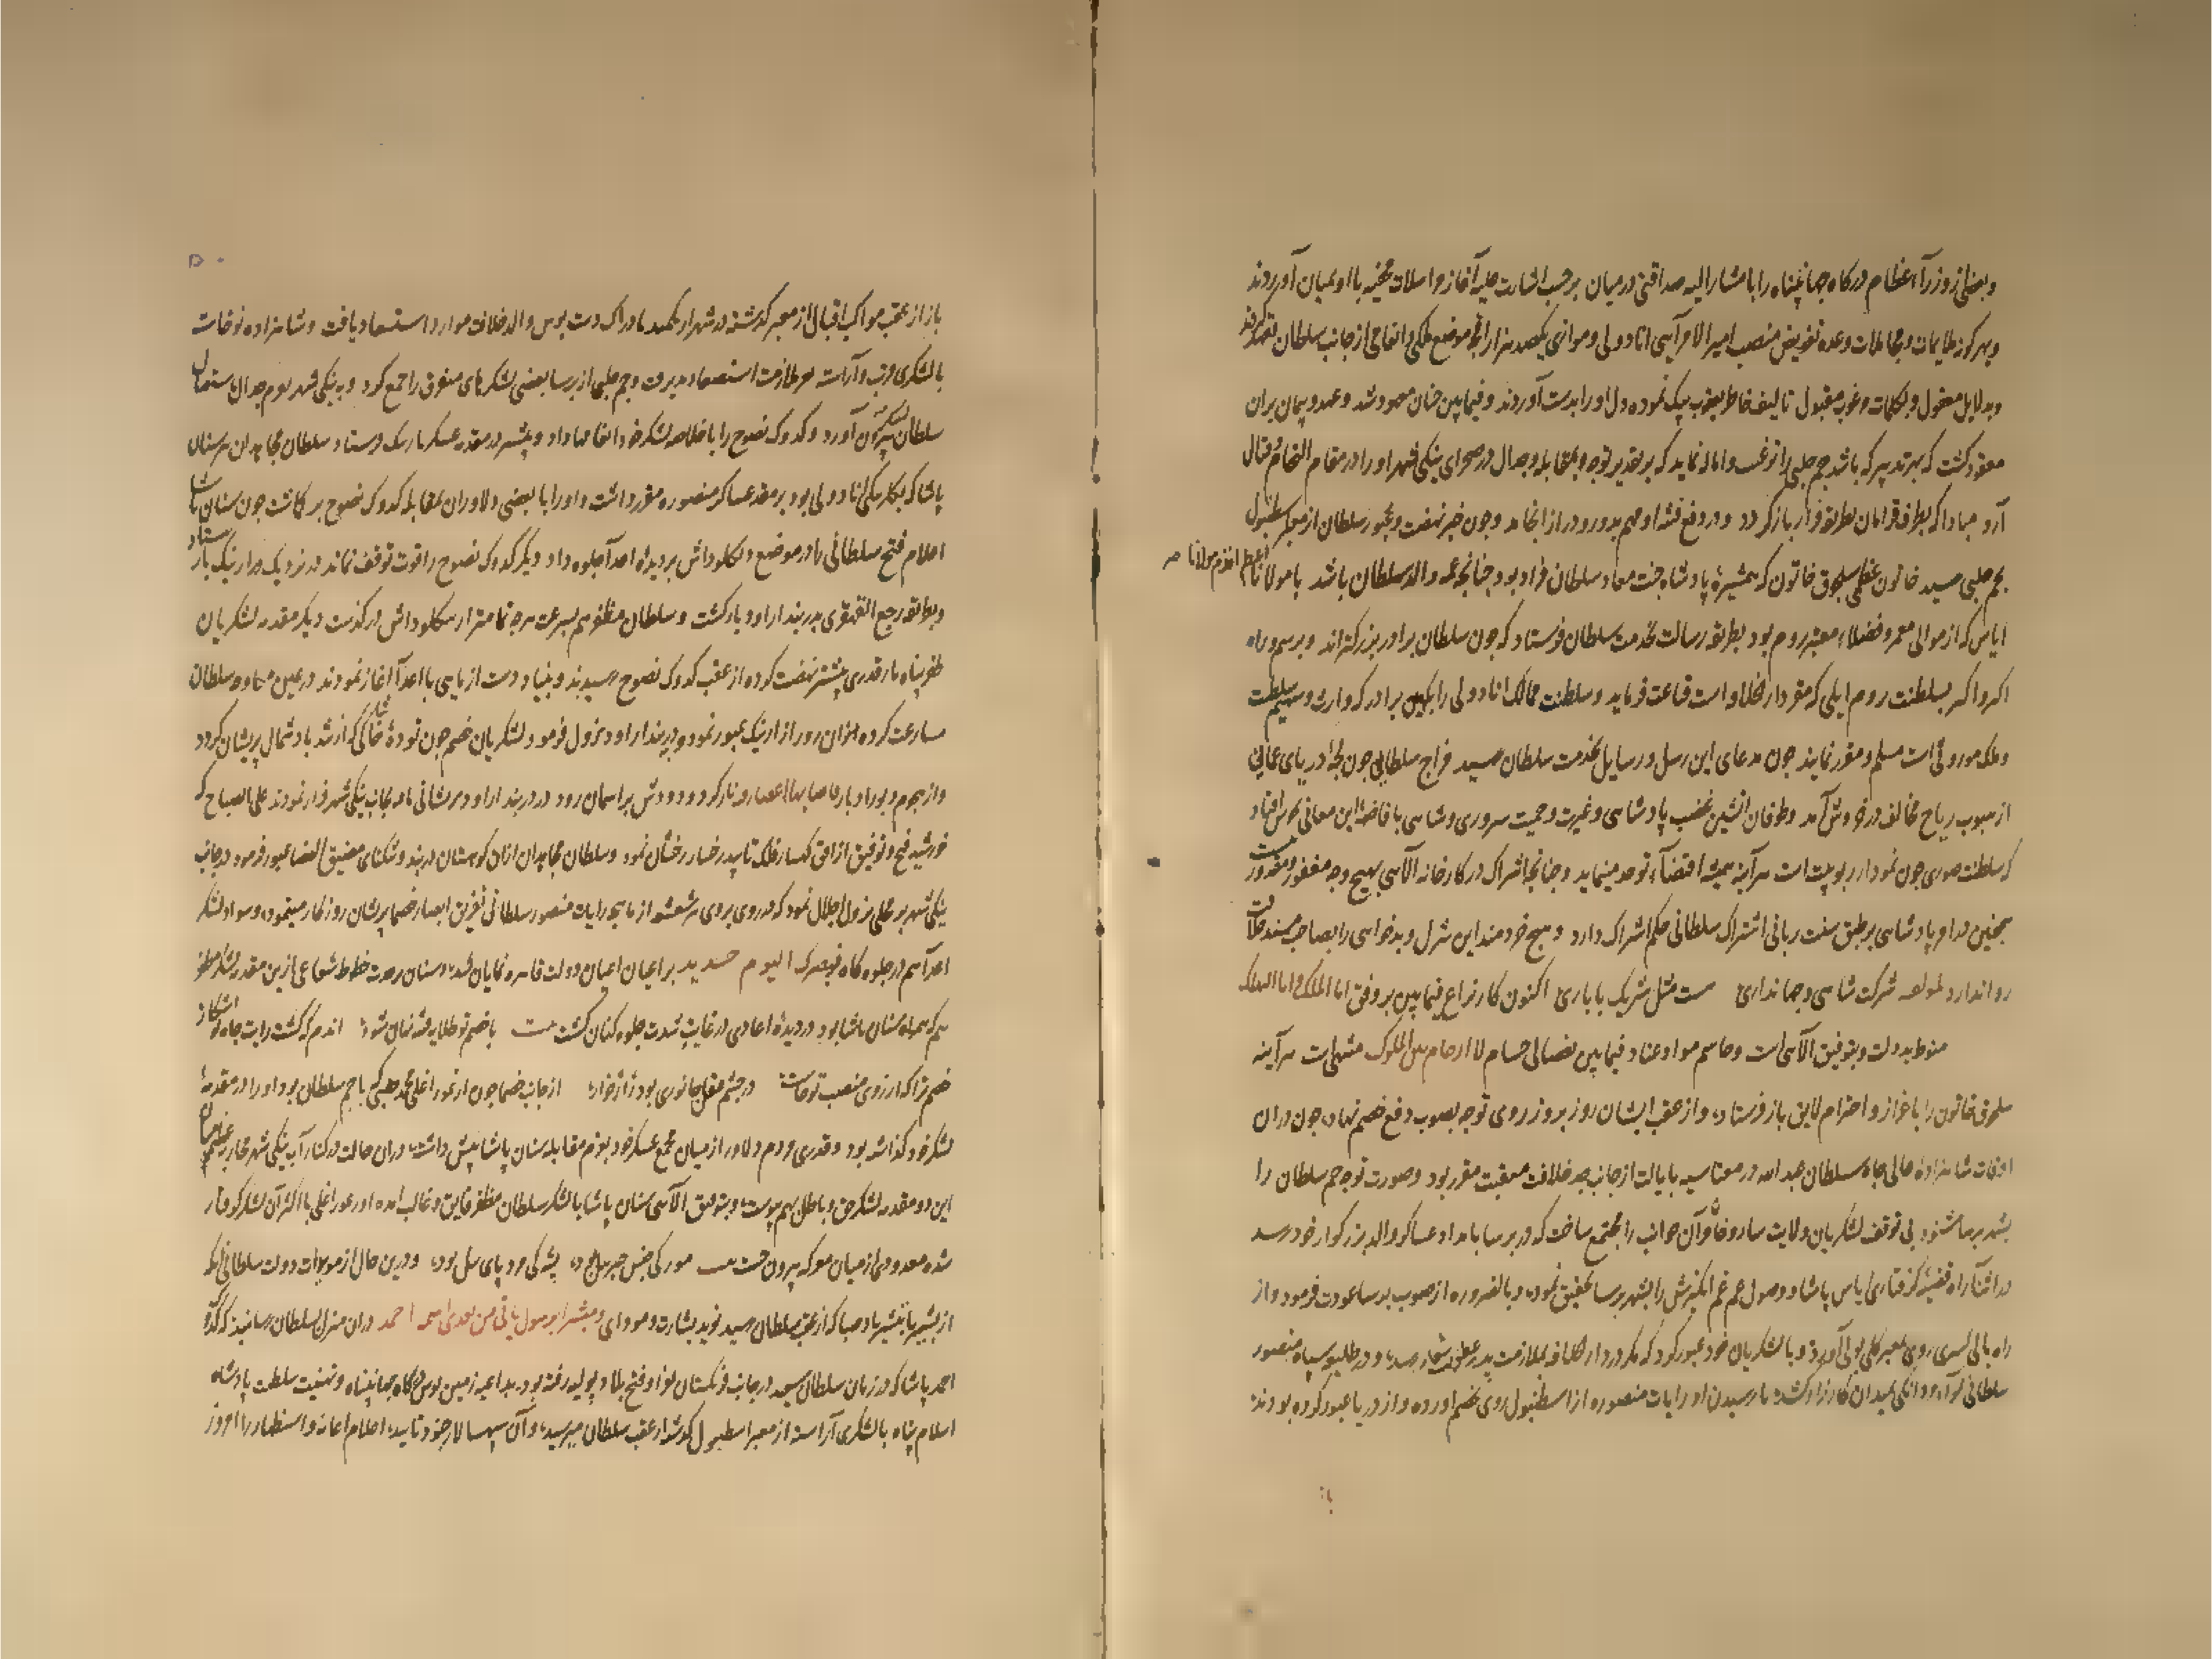 و بعضی از وزرآء عظام درکاه جهانپناه را با مشارالیه صداقتی در میان بر حسب اشارت علیه آغاز مراسلات مخفیه با او بمیان آوردند
و بهر کونه ملایمات و مجاملات وعده تفویض منصب امیر الامرآیی اناد ولی و موازی یکصد هزار اقچه موضع ملکی و انعامی از جانب سلطان تقریر کردند
و بدلایل معقول و بکلمات مرغوب مقبول تالیف خاطر یعقوب بیک نموده دل او را بدست آوردند و فیمابین چنان معهود شد و عهد و پیمان بران
معقود کشت که بهر تدبیر که باشد جم چلبی را ترغیب و اماله نماید که بر تقدیر توجه و بمقابله و جدال در صحرای ینکی شهر او را در مقام التحام قتال
آرد مبادا که بطرف قرامان بطریق فرار باز کردد و در دفع فتنه او مهم بدور و دراز انجامد و چون خبر نهضت و عبور سلطان از معبر اسطنبول
بجم چلبی رسید خاتون عظمی سلجوق خاتون که همشیرهٔ پادشاه جنت معاد سلطان مراد بود چنانچه عمه والد سلطان باشد با مولانا
اعظم اقدم مولانا صح
ایاس که از موالی معمر و فضلاء معتبر روم بود بطریق رسالت بخدمت سلطان فرستاد که چون سلطان برادر بزرکتراند و برسم و راه
اکر واکر بسلطنت روم ایلی که مقر دار الخلافه است قناعت فرماید و سلطنت ممالک اناد ولی را بکهین برادر که وارث و سهیم سلطنت
و ملک موروثی است مسلم و مقرر نمایند چون مدعای این رسل و رسایل بخدمت سلطان رسید مزاج سلطانی چون لجهٔ دریای عمانی
از هبوب ریاح مخالف در خروش آمد و طوفان آتشین غضب پادشاهی و غیرت و حمیت سروری و شاهی بافاضهٔ این معانی بجوش افتاد
که سلطنت صوری چون نمودار ربوبیت است هرآینه همیشه اقتضآء توحد مینماید و چنانچه اشراک در کارخانه الآهی بهیچ وجه مغفور و معذور نیست
همچنین در امر پادشاهی بر طبق سنت ربانی اشتراک سلطانی حکم اشراک دارد و هیچ خردمند این شرک و بدخواهی را بصاحب مسند خلافت
روا ندارد لمولفه شرکت شاهی و جهانداری هست مثل شریک با باری اکنون کار نزاع فیمابین بر وفق اما الملک و اما الهلک
منوط بدولت و بتوفیق الآهی است و حاسم مواد عناد فیمابین نصال حسام لا ارحام بین الملوک منتهی است هرآینه
سلجوق خاتون را باعزاز و احترام لایق باز فرستاد و از عقب ایشان روز بروز روی توجه بصوب دفع خصم نهاد چون دران
اوقات شاهزادهٔ عالی جاه سلطان عبد الله در مغنیسیه بایالت از جانب جد خلافت منقبت مقرر بود و صورت توجه جم سلطان را
بشهر برسا شنود بی توقف لشکریان ولایت ساروخان و آن جوانب را مجتمع ساخت که در برسا بامداد عساکر والد بزرکوار خود رسد
در اثنآء راه قضیهٔ کرفتاری ایاس پاشا و وصول عم غم انکیزش را بشهر برسا تحقیق نمود و بالضروره از صوب برسا عودت فرمود و از
راه بالی کسری روی بمعبر کلی بولی آورد و با لشکریان خود عبور کرد که مکر در دار الخلافه بملازمت پدر عطوفت شعار رسد و در طلیعه سپاه منصور
سلطانی همراه و دانکی میدان کارزار کشد تا رسیدن او رایات منصوره از اسطنبول روی بخصم آورده و از دریا عبور کرده بودند
باز
باز از عقب مواکب اقبال از معبر کذشته در شهر ازنکمید بادراک دست بوس والد خلافت موارد استسعاد یافت و شاهزاده نوخاست
با لشکری مرتب و آراسته بعز ملازمت استسعاد پذیرفت و جم چلبی از برسا بعضی لشکرهای متفرق را جمع کرد و به ینکی شهر بعزم جدال و استقبال
سلطان لشکر بیرون آورد و کدوک نصوح را با خلاصه لشکر خود اتفاقها داد و پیشتر در مقدمه عسکر بازنیک فرستاد سلطان مجاهدان هم سنان
پاشا که بکلربکی اناد ولی بود بر مقدمه عساکر منصوره مقرر داشت و او را با بعضی دلاوران بمقابله کدوک نصوح بر کماشت چون سنان پاشا
اعلام فتح سلطانی را در موضع دکلو داش بر دیدهٔ اعدآ جلوه داد دیکر کدوک نصوح را قوت توقف نماند در نزدیک حصار ازنیک باز ستاد
و بطریق رجع القهقری بدربند ازاود باز کشت و سلطان مظفر هم بسرعت هر چه تمامتر از دکلو داش در کذشت دیکر مقدمه لشکریان
ظفر پناه بار قدری پیشتر نهضت کرده از عقب کدوک نصوح رسیدند و بنیاد دست بازی با اعدآ آغاز نمودند در عین مناوشه سلطان
مسارعت کرده همان روز از ازنیک عبور نمود و در بند ازاود نزول فرمود و لشکریان خصم چون تودهٔ خاکی که از شد باد شمال پریشان کردد
و از هجوم دبور ادبار فاصابها اعصار و نار کرد و دودش بر آسمان رود در دربند ازاود پریشانی یافته بجانب ینکی شهر فرار نمودند علی الصباح که
خورشید فتح و توفیق از افق کهسار فلک تایید رخسار رخشان نمود و سلطان مجاهدان ازان کوهستان دربند و تنکنای مضیق الفضا عبور فرمود در جانب
ینکی شهر بر محلی نزول اجلال نمود که در روی بروی هم شعشعه از ماهچه رایات منصور سلطانی تفریق ابصار خصمای پریشان روزکار مینمود و سواد لشکر
اعدآ هم در جلوه کاه فبصرک الیوم حدید بر اعیان اعیان دولت قاهره نمایان شد و سنان رمح خطوط شعاعی ازین مقدمه لشکر مظفر
هم که همراه سنان پاشا بود در دیدهٔ اعادی در غایت شدت جلوه کنان کشت بیت با خصم تو طلایه فتنه نهان شود اندم که کشت رایت جاه تو آشکار
خصم ترا که ارزوی منصب تو خاست در چشم عقل جانوری بود ژاژخوار از جانب خصما چون ارغور اغلی محمد چلبی با جم سلطان بود او را در مقدمهٔ
لشکر خود کذاشته بود و قدری مردم دلاور از میان مجمع عسکر خود بعزم مقابله سنان پاشا پیش داشت و دران حالت در کنار آب ینکی شهر محاربه عظیم میان
این دو مقدمه لشکر حق و باطل بهم پیوست و بتوفیق الآهی سنان پاشا با لشکر سلطان مظفر فایق و غالب آمده اوزغور اغلی با اکثر آن لشکر کرفتار
شده معدودی از میان معرکه بیرون جست بیت مور کی خیل جبرییل بود پشه کی مرد پای پیل بود و درین حال از مویدات دولت سلطانی یکی
از بشیر باتبشیر باد صبا که از عقب سلطان رسید نوید بشارت و مودای و مبشرا برسول یاتی من بعدی اسمه احمد دران منزل سلطان رسانید که کدک
احمد پاشا که در زمان سلطان سعید در جانب فرنکستان بغزا و فتح بلاد پولیه رفته بود بداعیه زمین بوس درکاه جهانپناه و تهنیت سلطنت پادشاه
اسلام پناه با لشکری آراسته از معبر اسطنبول کذشته از عقب سلطان میرسید و آن سپهسالار جنود تایید اعلام اعانه و استظهار را امروز